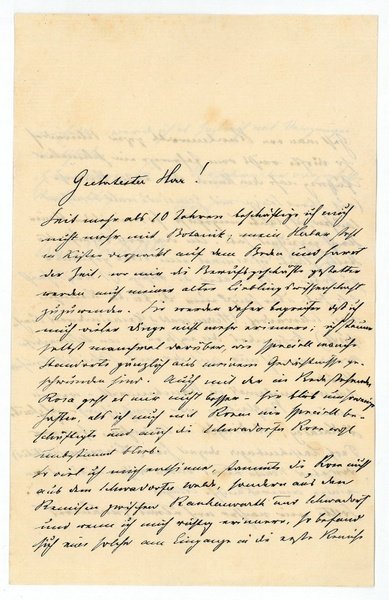 Geehrtester Herr!
Seit mehr als 10 Jahren beschäftige ich mich
nicht mehr mit Botanik; mein Herbar steht
in Kisten verpackt auf dem Boden und harret
der Zeit, wo mir die Berufsgeschäfte gestatten
werden mich meiner alten Lieblingswissenschaft
zuzuwenden. Sie werden daher begreifen daß ich
mich vieler Dinge nicht mehr erinnere; ich staune
selbst manchmal darüber, wie speciell manche
Standorte gänzlich aus meinem Gedächtnisse ge-
schwunden sind. Auch mit der in Rede stehenden
Rosa geht es mir nicht besser. Sie blieb um so weniger
haften, als ich mich mit Rosen nie speciell be-
schäftigte und auch die Schwadorfer Rose
unbestimmt blieb.
So viel ich mich entsinne, stammte die Rose nicht
aus dem Schwadorfer Walde, sondern aus den
Remisen zwischen Rauhenwarth und Schwadorf
und wenn ich mich richtig erinnere, so befand
sich eine solche am Eingange in die erste Remise